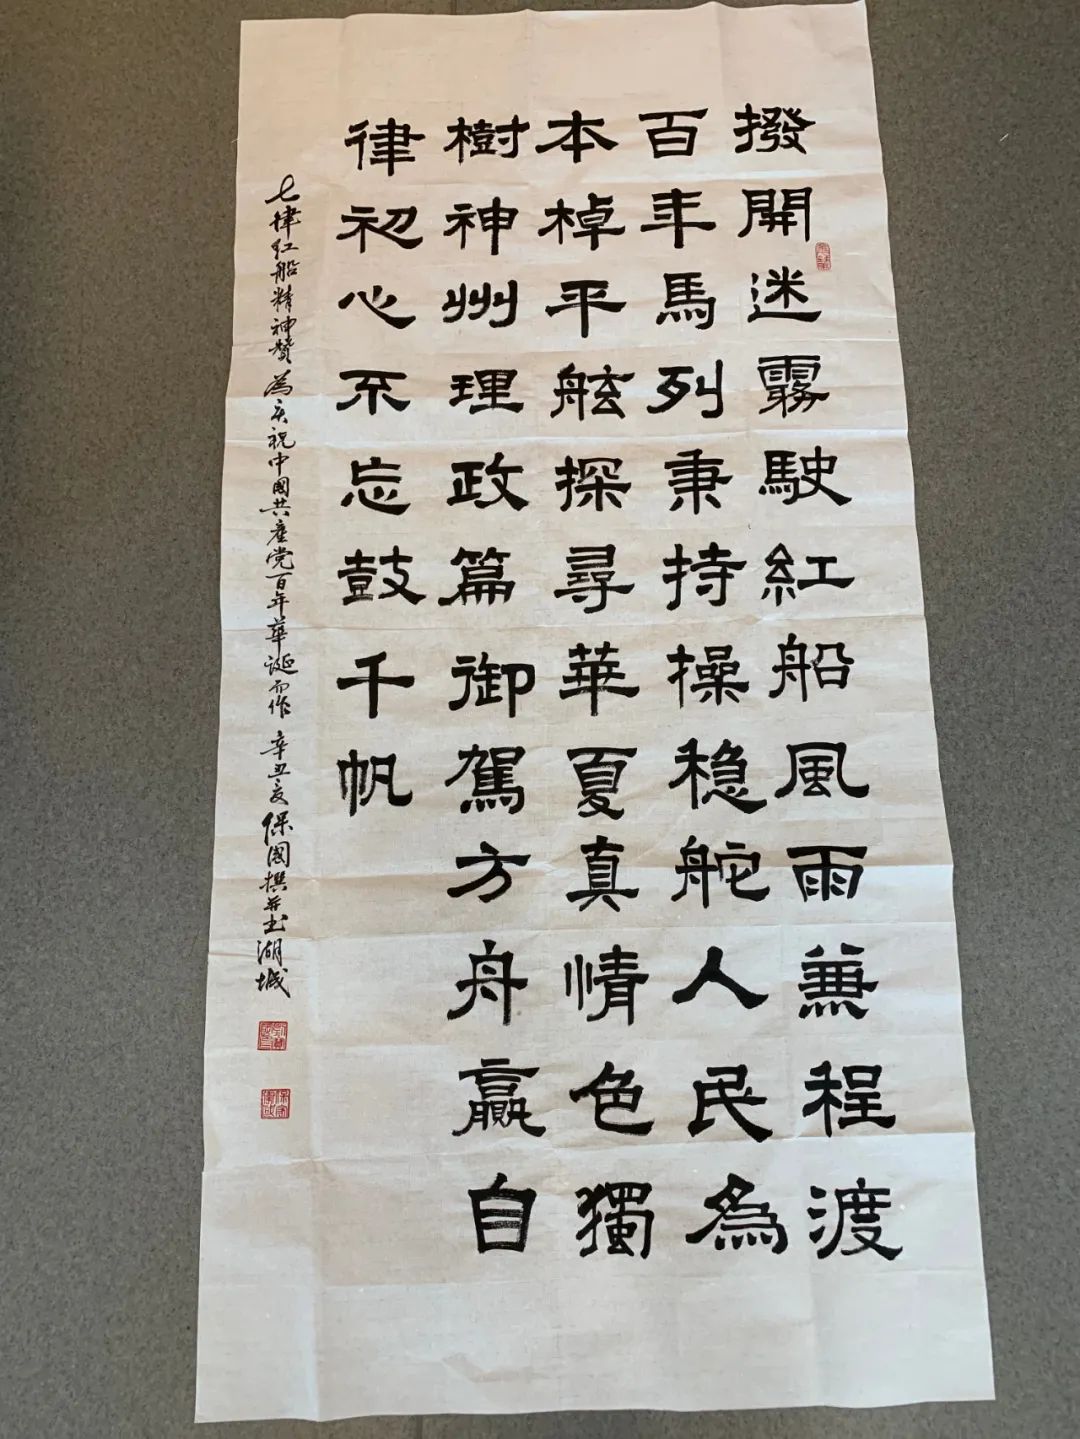 撥開迷霧駛紅船風雨兼程渡
百年馬列秉持操稳舵人民為
本棹平舷探尋華夏真情色獨
樹神州理政篇御駕方舟贏自
律初心不忘鼓千帆
七律红船精神赞為庆祝中國共產党百年華诞而作 辛丑夏保國撰并书湖城